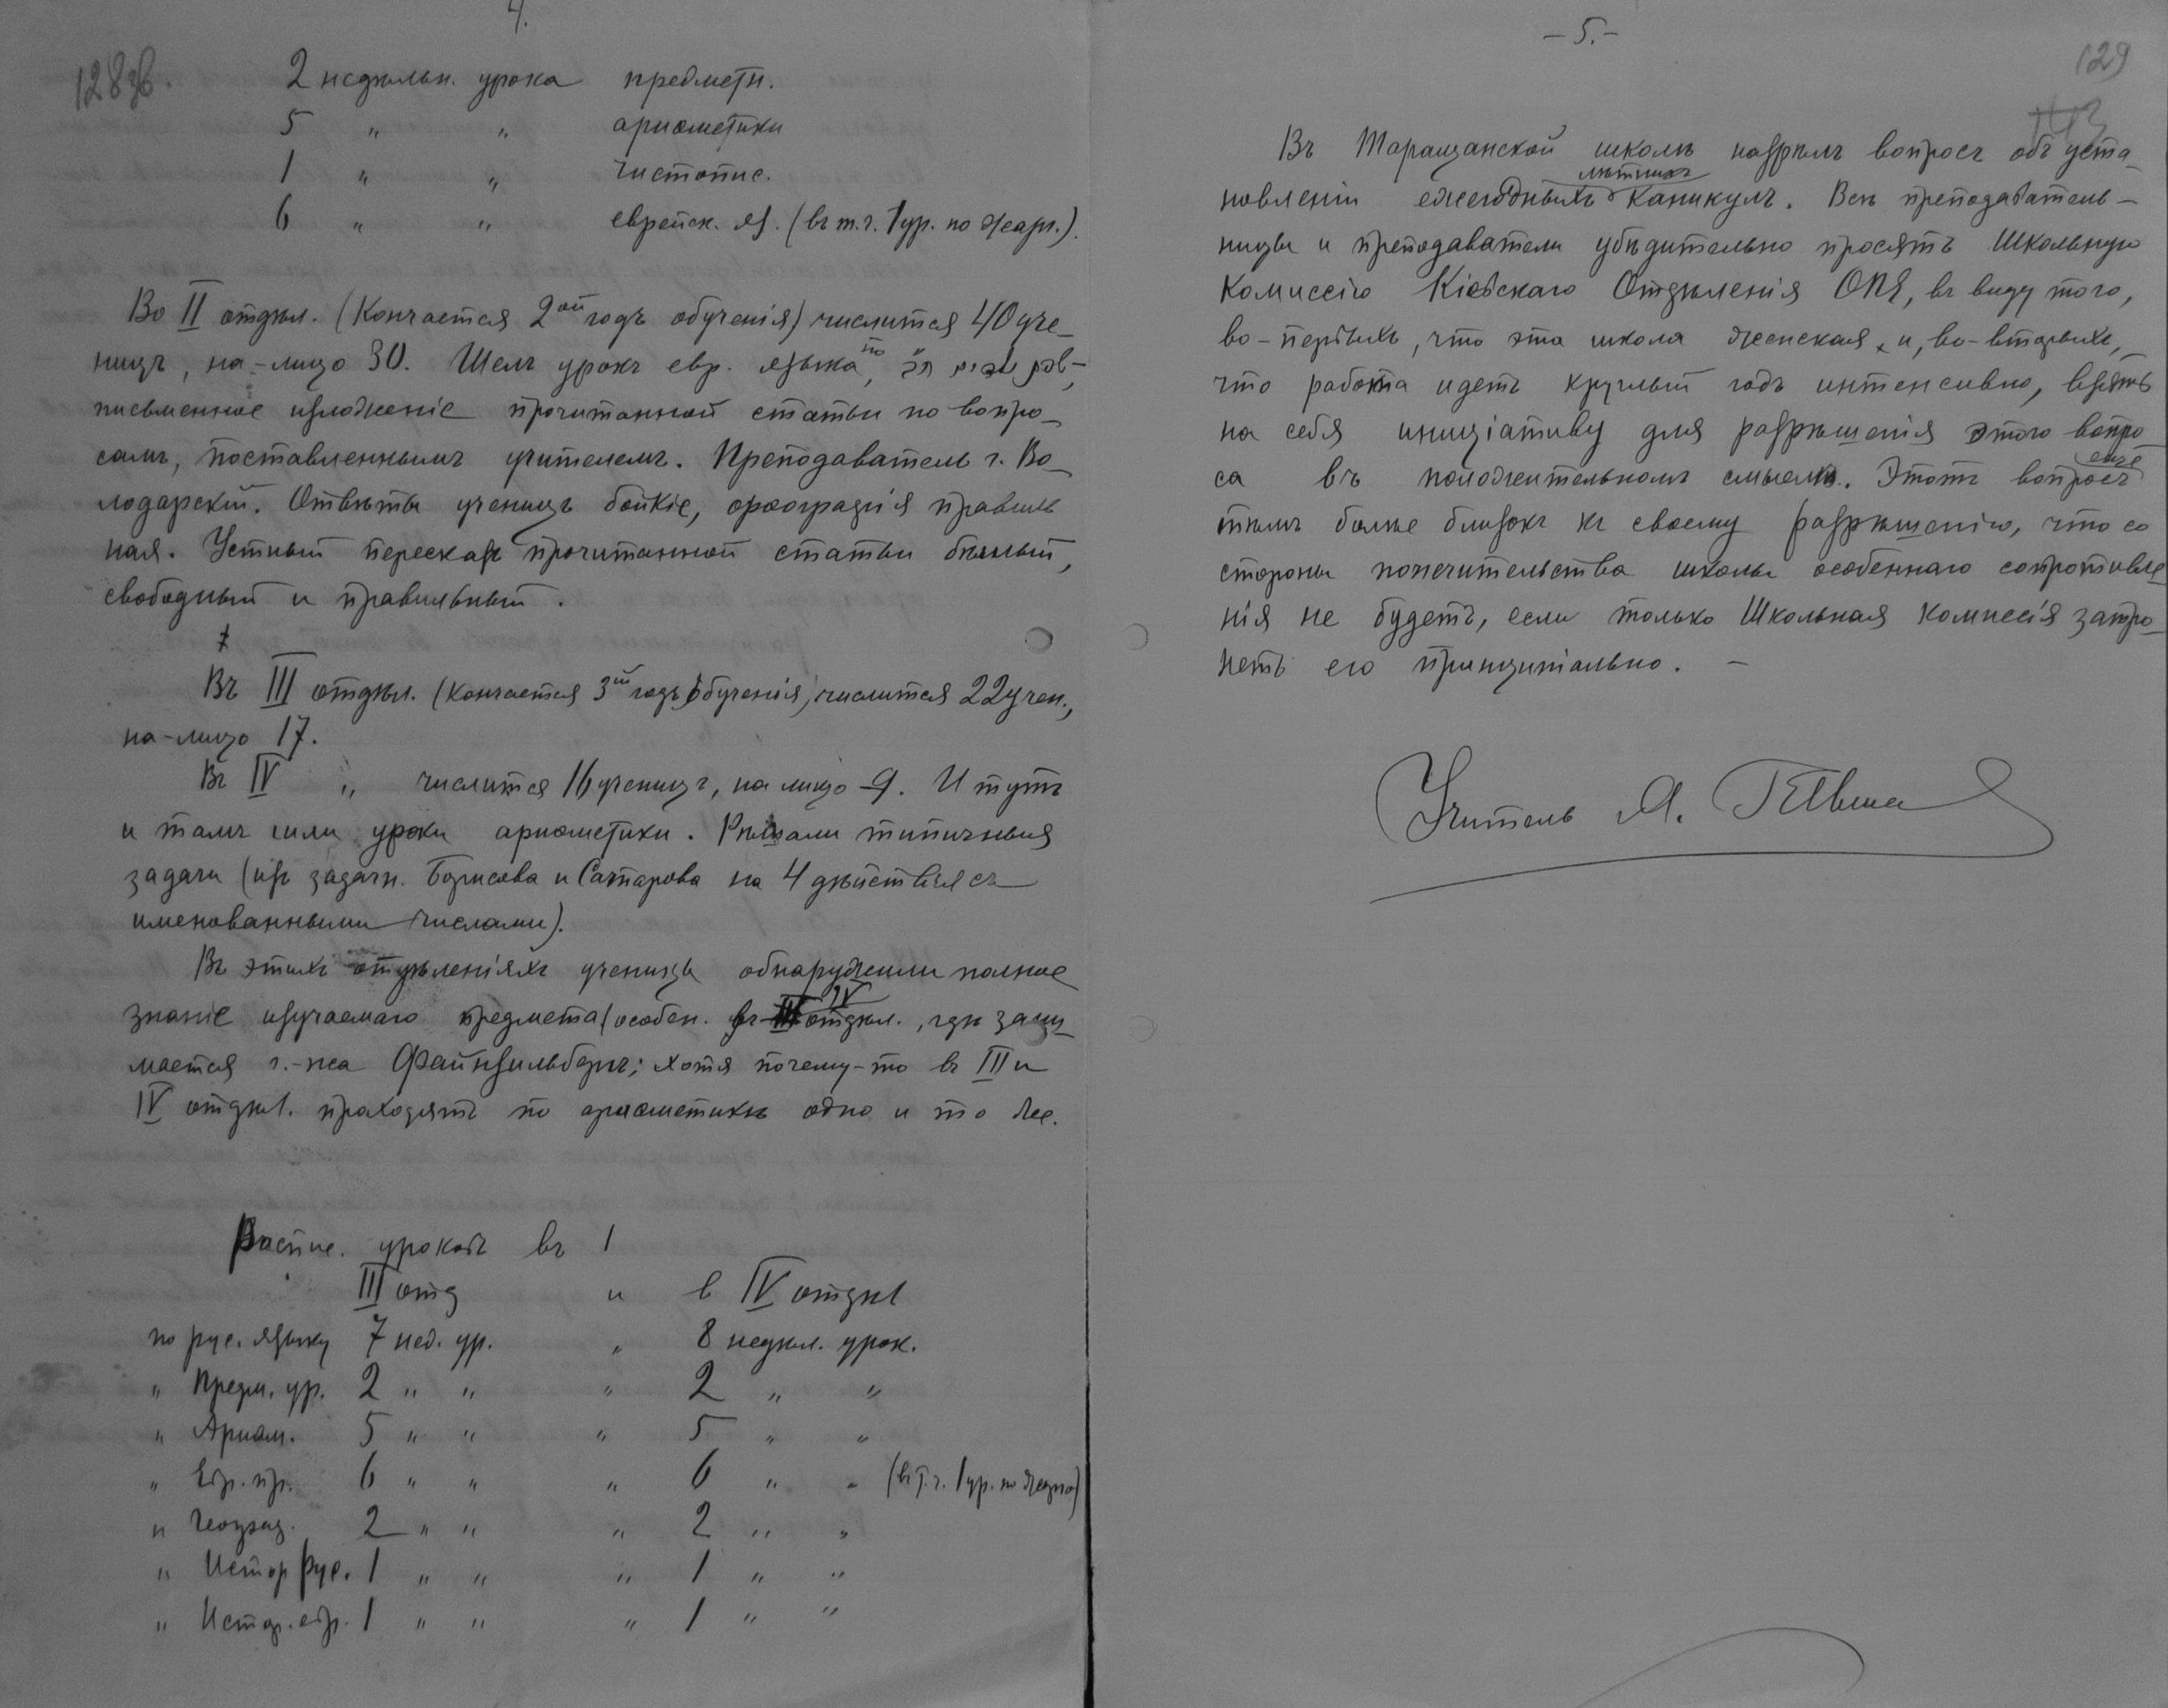 4.
128об.
2 недѣльн. урока предметн.
5 " " ариѳметики
1 " " чистопис.
6 " " еврейск. яз. (въ т. ч. 1 ур. по жарг.).
Во II отдѣл. (Кончается 2ой годъ обученія) числится 40 уче-
ницъ, на-лицо 30. Шелъ урокъ евр. языка, по
письменное изложеніе прочитанной статьи по вопро-
самъ, поставленнымъ учителемъ. Преподаватель г. Во-
лодарскій. Отвѣты ученицъ бойкіе, орѳографія правиль
ная. Устный пересказъ прочитанной статьи бѣглый,
свободный и правильный.
Въ III отдѣл. (Кончается 3ій годъ обученія) числится 22 учен.,
на-лицо 17.
Въ IV " числится 16 ученицъ, на лицо 9. И тутъ
и тамъ шли уроки ариѳметики. Рѣшали типичныя
задачи (изъ задачн. Борисова и Сатарова на 4 дѣйствія съ
именованными числами).
Въ этихъ отдѣленіяхъ ученицы обнаружили полное
знаніе изучаемаго предмета (особен. въ IV отдѣл., гдѣ зани-
мается г.-жа Файнзильбергъ; хотя почему-то въ III и
IV отдѣл. проходятъ по ариѳметикѣ одно и то же.
Распис. уроковъ въ 1
III отд и в IV отдѣл
по рус. языку 7 нед. ур. " 8 недѣл. урок.
" Предм. ур. 2 " " " 2 " "
" Ариѳм. 5 " " " 5 " "
" Евр. пр. 6 " " " 6 " " (въ т. ч. 1 ур. по жарго)
" Географ. 2 " " " 2 " "
" Истор рус. 1 " " " 1 " "
" Истор. евр. 1 " " " 1 " "
-5.-
129
113
Въ Таращанской школѣ назрѣлъ вопросъ объ уста-
новленіи ежегодныхъ лѣтнихъ каникулъ. Всѣ преподаватель-
ницы и преподаватели убѣдительно просятъ Школьную
Комиссію Кіевскаго Отдѣленія ОПЕ, въ виду того,
во-первыхъ, что эта школа женская, и, во-вторыхъ,
что работа идетъ круглый годъ интенсивно, взять
на себя иниціативу для разрѣшенія этого вопро
са въ положительномъ смыслѣ. Этотъ вопросъ еще
тѣмъ болѣе близокъ къ своему разрѣшенію, что со
стороны попечительства школы особеннаго сопротивле
нія не будетъ, если только Школьная Комиссія затро-
нетъ его принципіально. —
Учитель